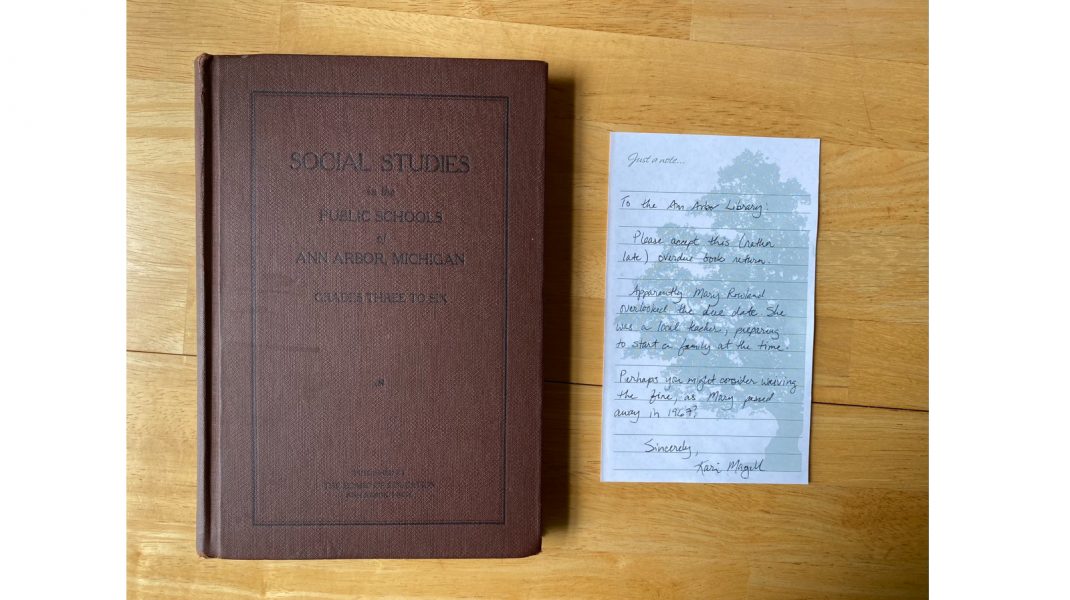 SOCIAL STUDIES
in the
PUBLIC SCHOOLS
of
ANN ARBOR, MICHIGAN
GRADES THREE TO SIX
THE BOARD OF EDUCATION
ANN ARBOR, MICH.
Just a note...
To the Ann Arbor Library:
Please accept this (rather
late) overdue book return.
Apparently Mary Rowland
overlooked the due date. She
was a local teacher, preparing
to start a family at the time.
Perhaps you might consider waiving
the fine, as Mary passed
away in 1967?
Sincerely,
Kari Magill